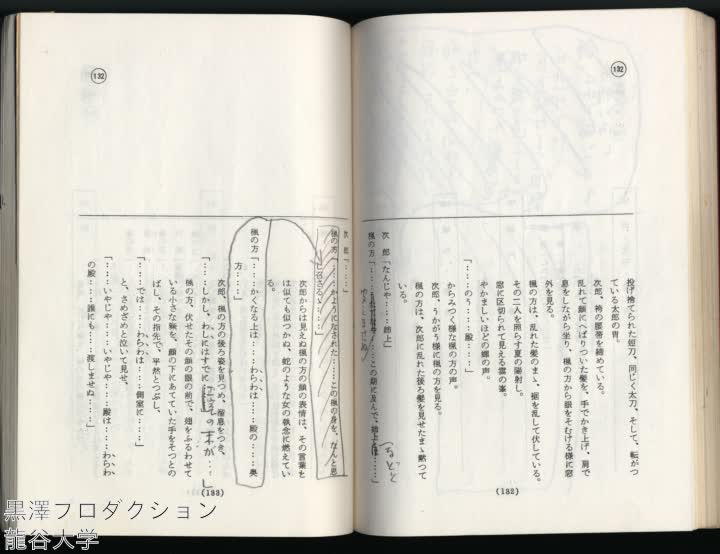 132
投げ捨てられた短刀、同じく太刀、そして、転がっ
ている太郎の冑。
次郎、袴の腰帯を締めている。
乱れて顔にへばりついた髪を、手でかき上げ、肩で
息をしながら坐り、楓の方から眼をそむける様に窓
外を見る。
楓の方は、乱れた髪のまゝ、裾を乱して伏している。
その二人を照らす夏の陽射し。
窓に区切られて見える雲の峯。
やかましいほどの蝉の声。
「‥‥のう‥‥殿‥‥」
からみつく様な楓の方の声。
次郎、うかがう様に楓の方を見る。
楓の方は、次郎に乱れた後ろ髪を見せたまゝ黙って
いる。
次郎「なんじゃ‥‥姉上」
楓の方「‥‥この期に及んで、姉上は‥‥」
(132)
132
次郎「‥‥」
楓の方「‥‥かようになされた‥‥この楓の身を、なんと思
し召さるゝ‥‥」
次郎からは見えぬ楓の方の顔の表情は、その言葉と
は似ても似つかぬ、蛇のような女の執念に燃えてい
る。
楓の方「‥‥かくなる上は‥‥わらわは‥‥殿の‥‥奥
方‥‥」
次郎、楓の方の後ろ姿を見つめ、溜息をつき、
「‥‥しかし、わしにはすでに末の方が‥‥」
楓の方、伏せたその顔の眼の前で、翅をふるわせて
いる小さな蛾を、顔の下にあてていた手をそっとの
ばし、その指先で、平然とつぶし、
「‥‥では‥‥わらわは‥‥側室に‥‥」
と、さめざめと泣いて見せ、
「‥‥いやじゃ‥‥いやじゃ‥‥殿は‥‥わらわ
の殿‥‥誰にも‥‥渡しませぬ‥‥」
(133)
黒澤プロダクション
龍谷大学